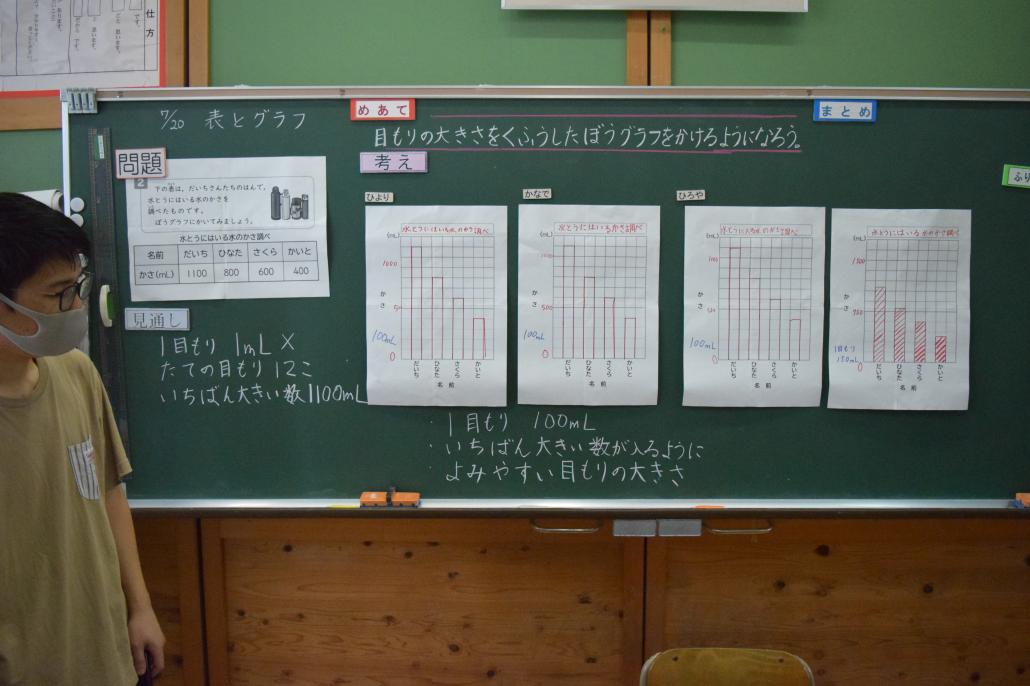 仕方
です。
7/20 表とグラフ
めあて
目もりの大きさをくふうしたぼうグラフをかけるようになろう。
まとめ
問題
2
下の表は、だいちさんたちのはんで、
水とうにはいる水のかさを
調べたものです。
ぼうグラフにかいてみましょう。
水とうにはいる水のかさ調べ
名前 だいち ひなた さくら かいと
かさ(mL) 1100 800 600 400
見通し
1目もり 1mL ×
たての目もり 12こ
いちばん大きい数1100mL
考え
ひより
水とうにはいる水のかさ調べ
(mL)
1000
かさ
100mL
0
だいち ひなた さくら かいと
名前
かなで
水とうにはいるかさ調べ
(mL)
1000
かさ
500
100mL
0
だいち ひなた さくら かいと
名前
ひろや
水とうに入る水のかさ調べ
(mL)
かさ
100mL
0
だいち ひなた さくら かいと
名前
水とうにはいる水のかさ調べ
(mL)
1500
かさ
750
1目もり
150mL
0
だいち ひなた さくら かいと
名前
・1目もり 100mL
・いちばん大きい数が入るように
・よみやすい目もりの大きさ
ふり